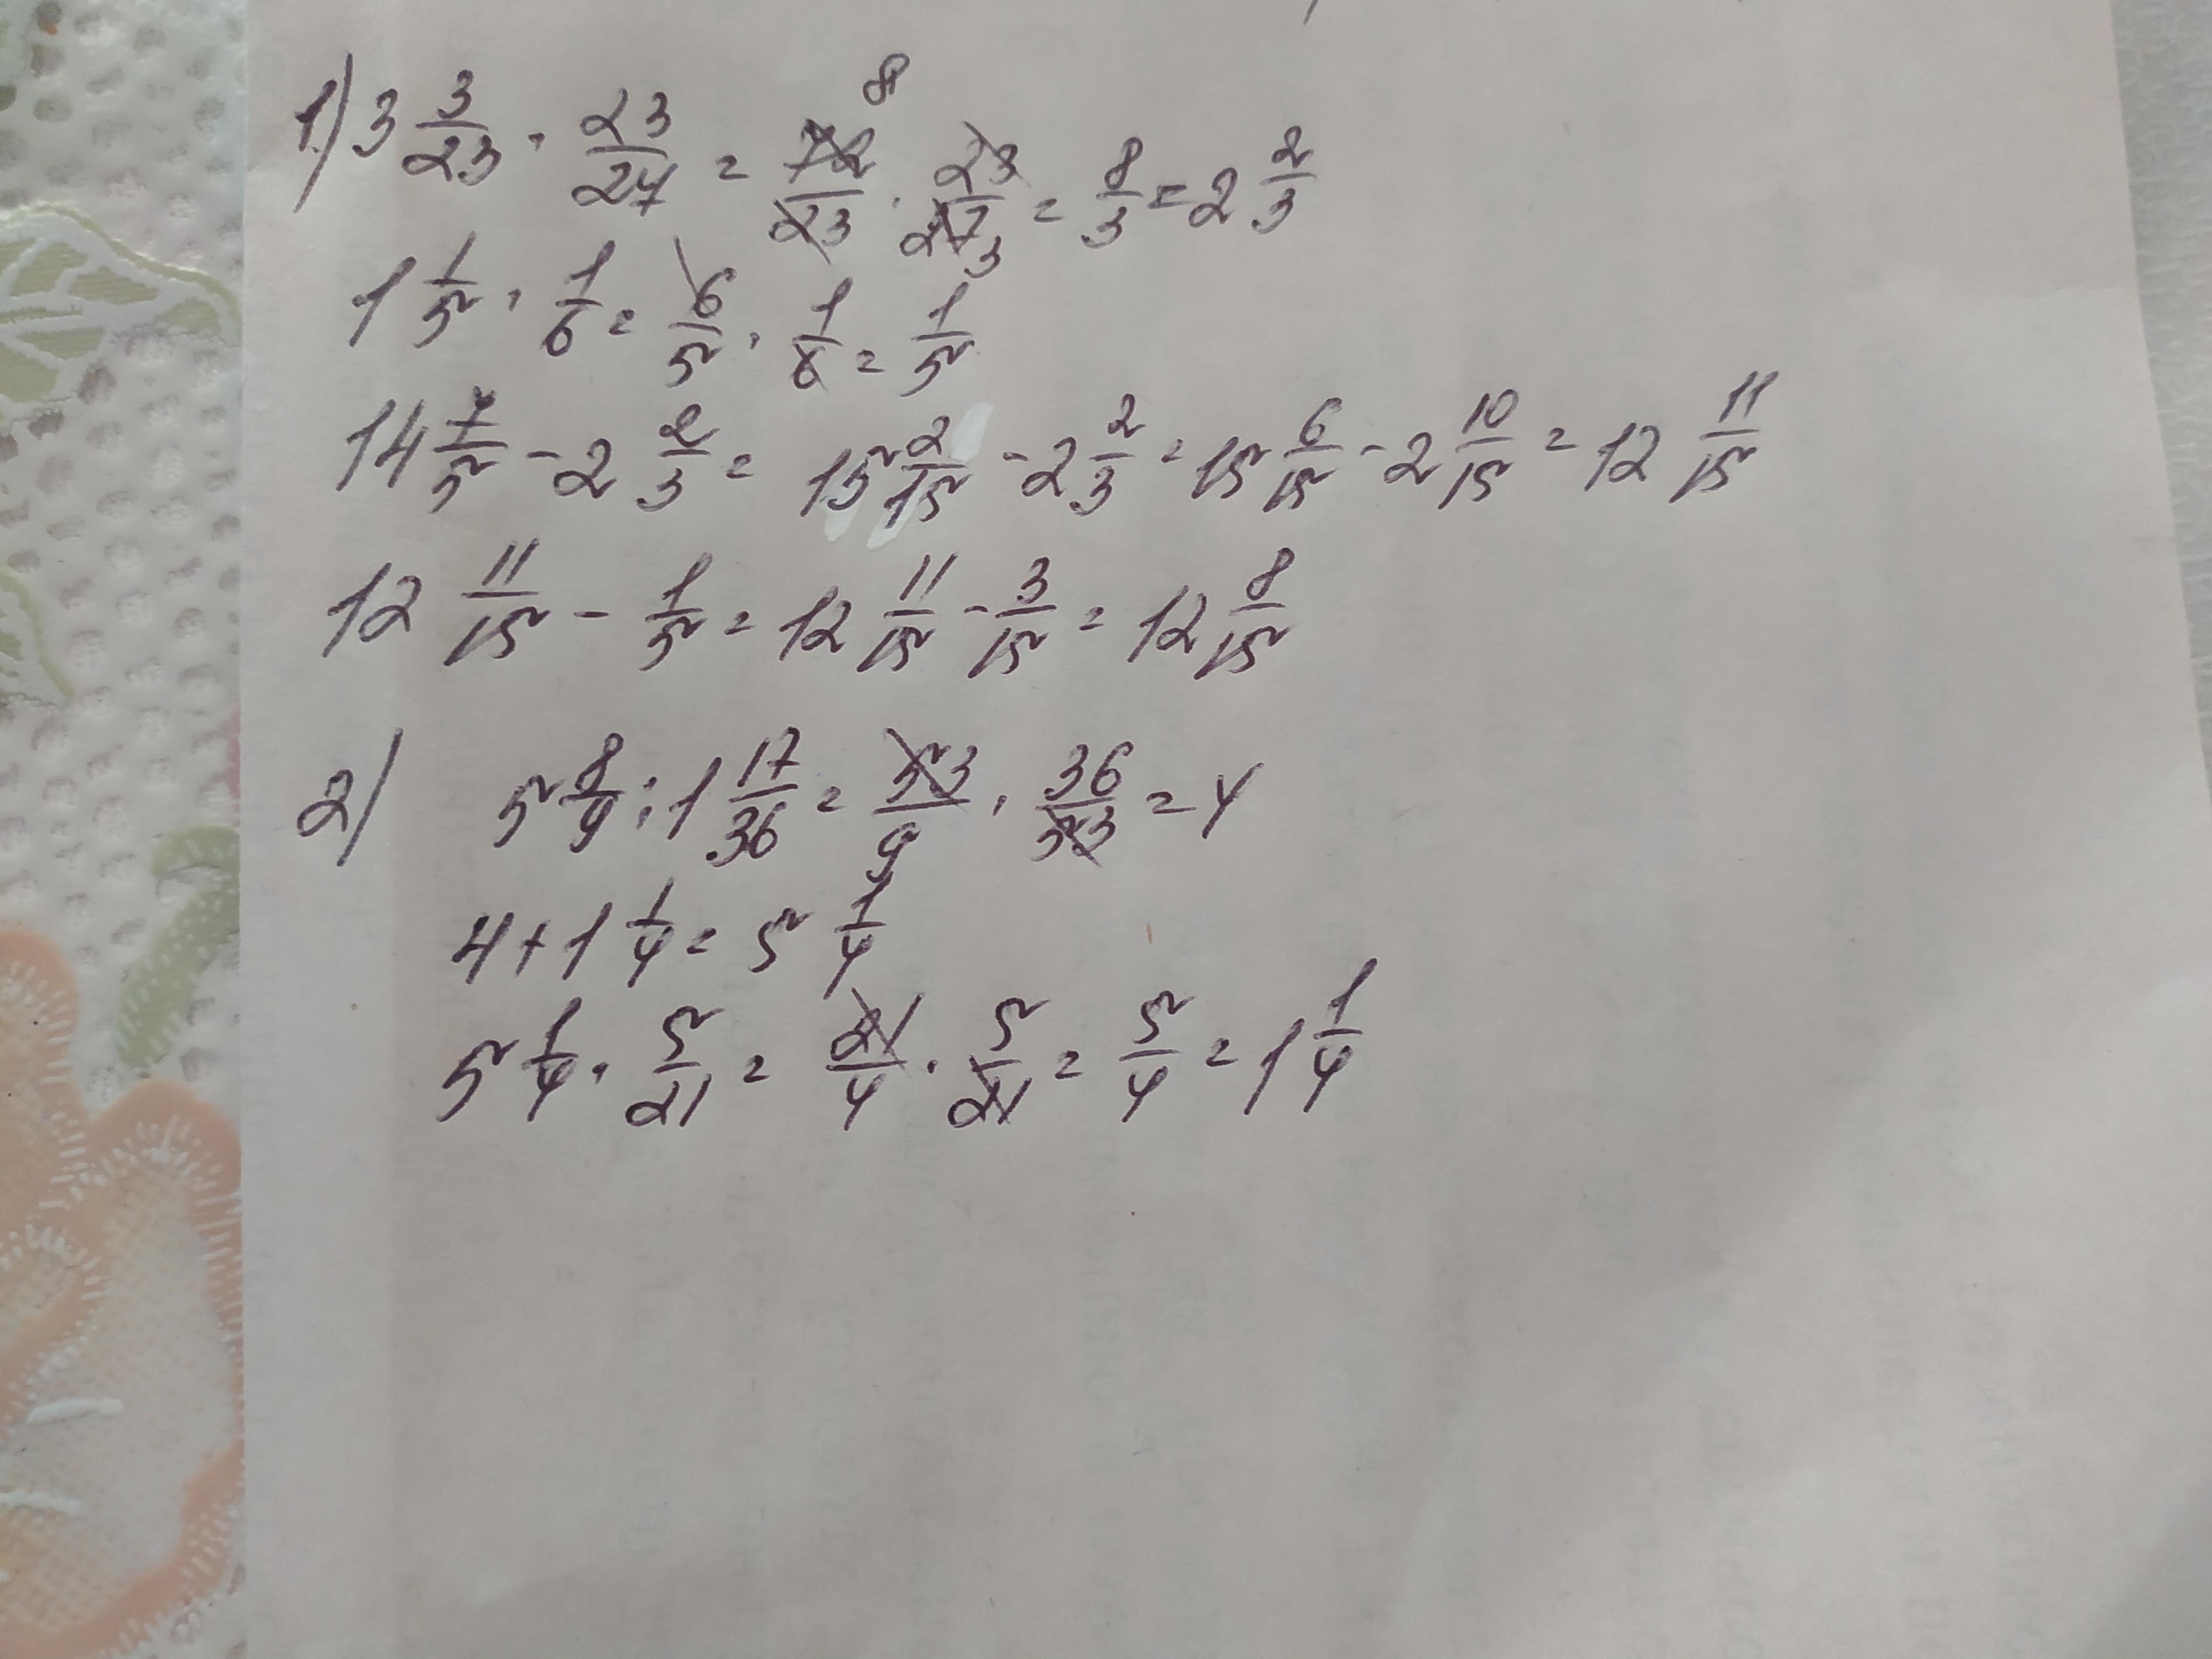 1) 3 3/23 · 23/27 = 72/23 · 23/27 = 8/3 = 2 2/3
1 1/5 · 1/6 = 6/5 · 1/6 = 1/5
14 7/5 - 2 2/3 = 15 2/15 - 2 2/3 = 15 6/15 - 2 10/15 = 12 11/15
12 11/15 - 1/5 = 12 11/15 - 3/15 = 12 8/15
2) 5 8/9 : 1 17/36 = 53/9 · 36/53 = 4
4 + 1 1/4 = 5 1/4
5 1/4 · 5/21 = 21/4 · 5/21 = 5/4 = 1 1/4